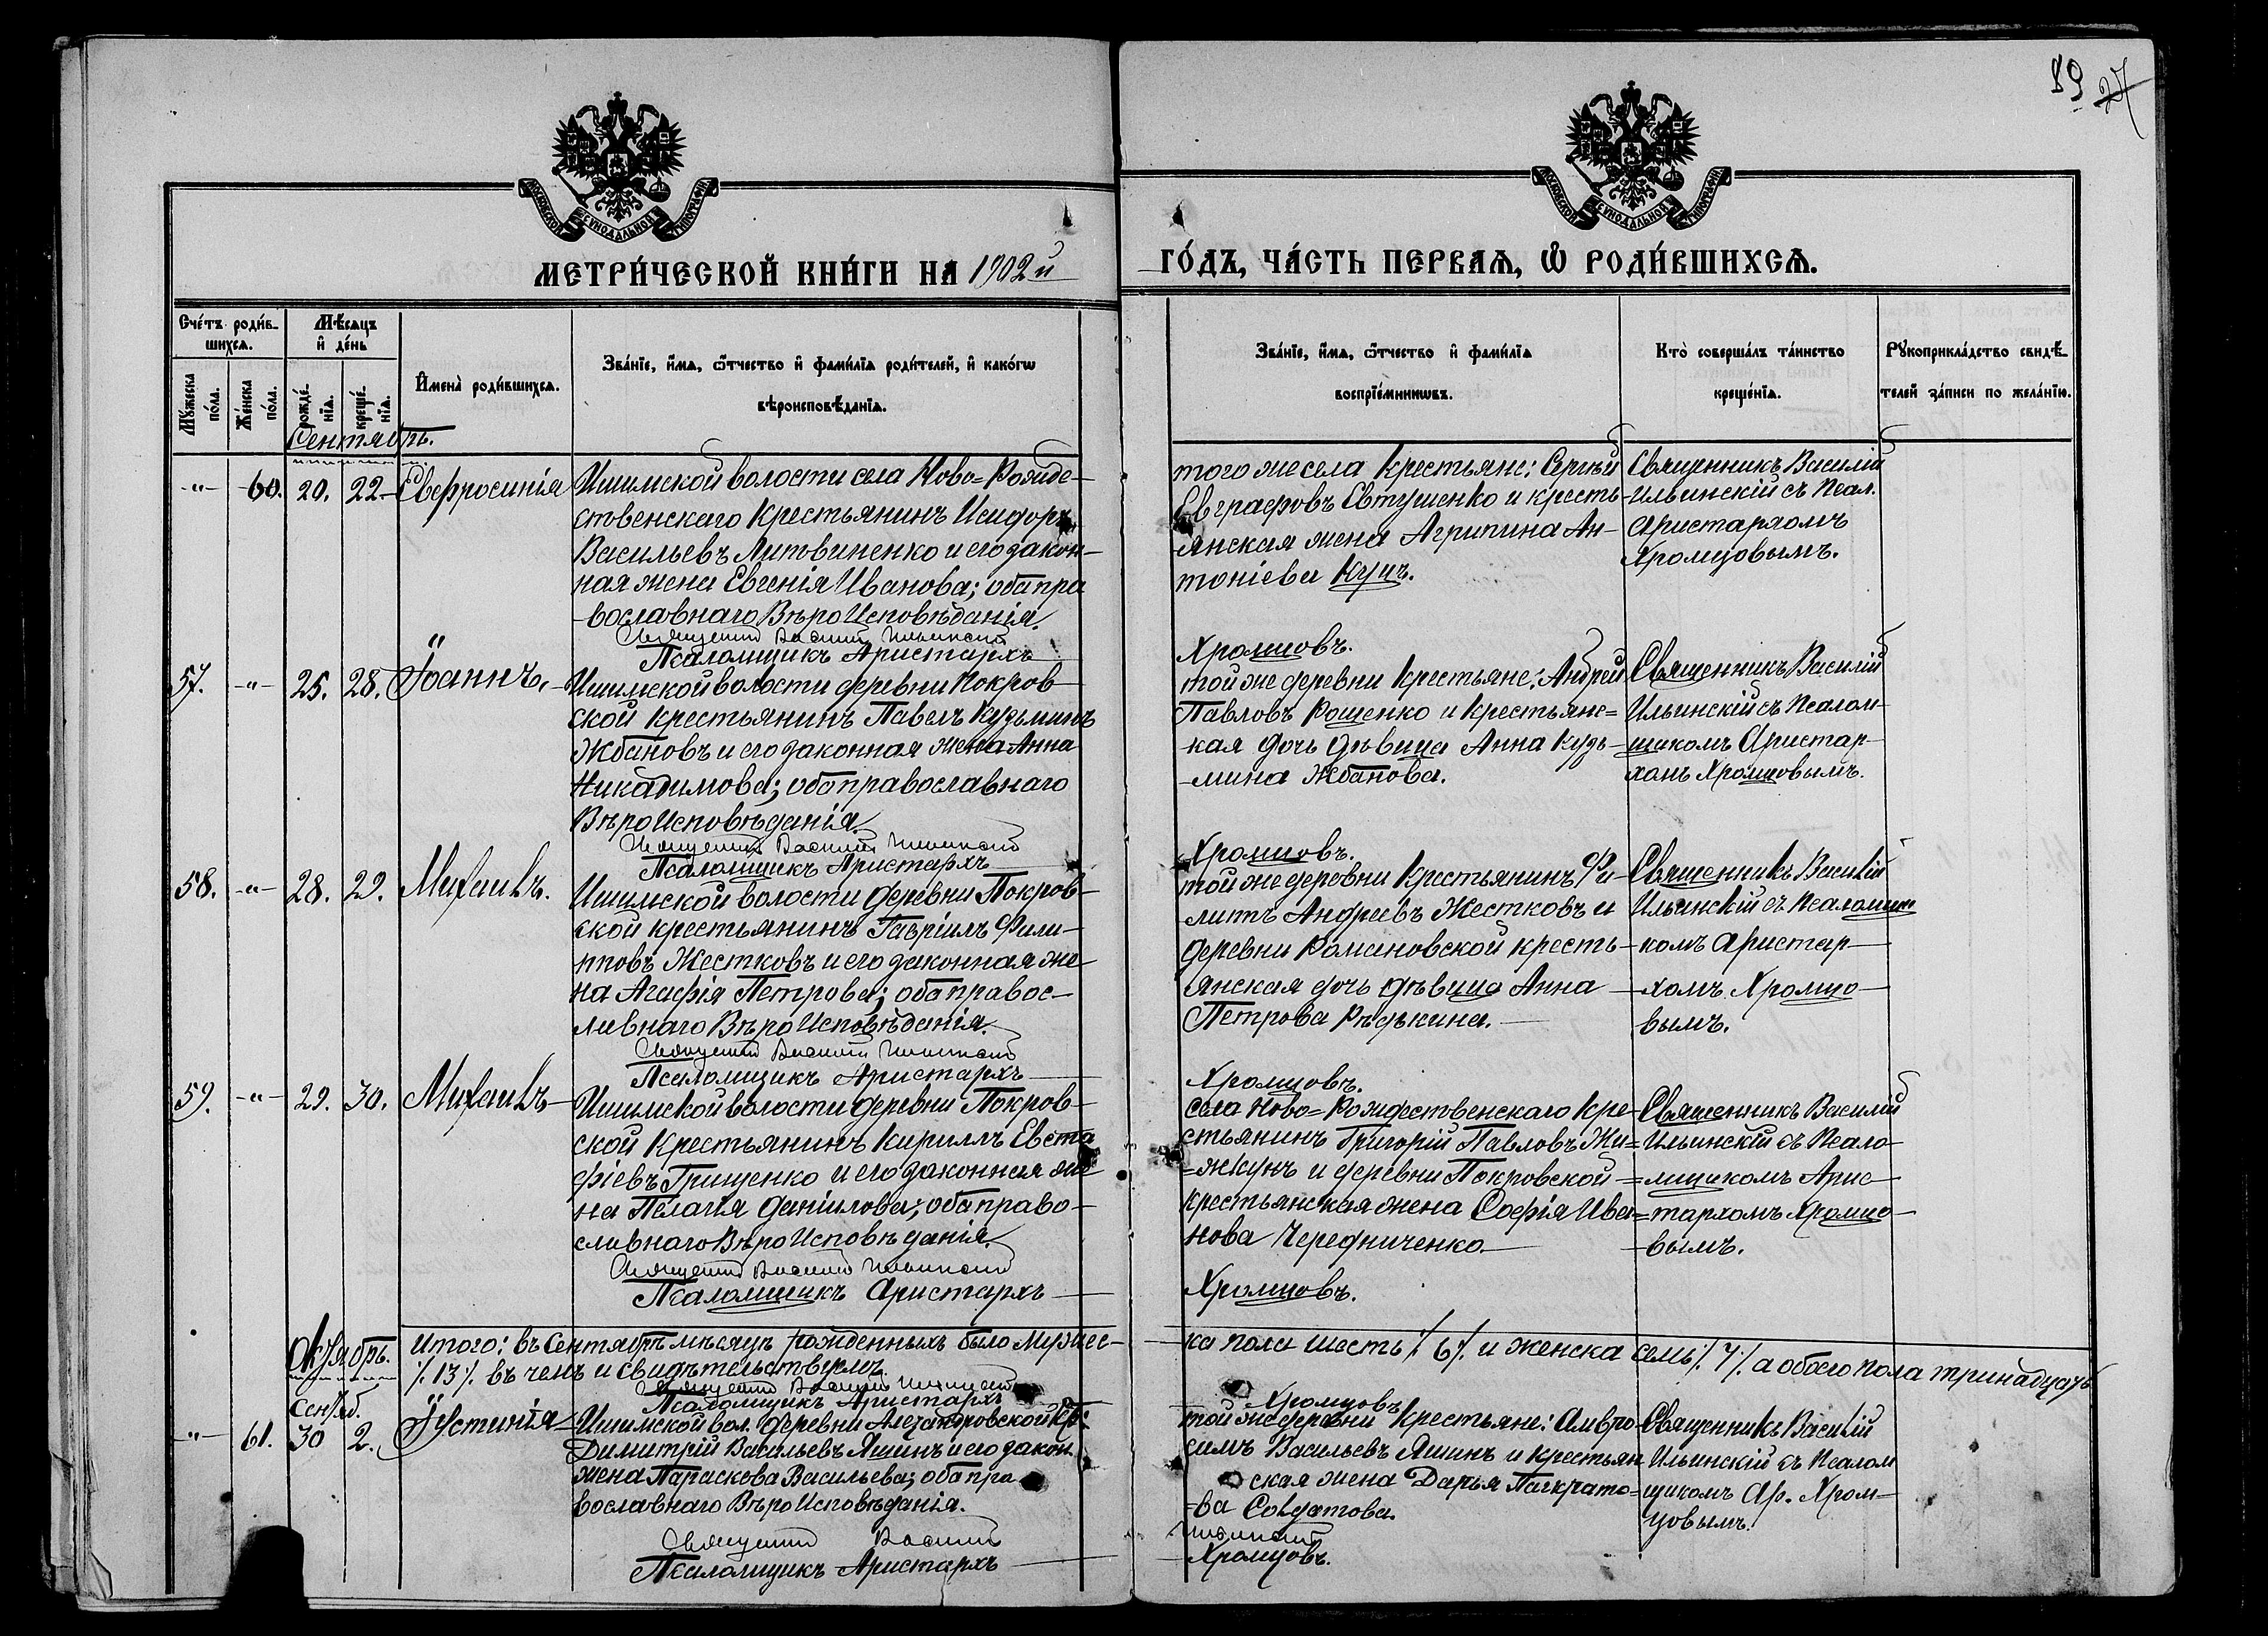 89 27
МОСКОВСКОЙ СѴНОДАЛЬНОЙ ТИПОГРАФІИ
МОСКОВСКОЙ СѴНОДАЛЬНОЙ ТИПОГРАФІИ
МЕТРИ́ЧЕСКОЙ КНИ́ГИ НА 1902й
ГО́ДЪ, ЧА́СТЬ ПЕРВАѦ, Ѡ РОДИ́ВШИХСѦ.
Сче́тъ роди́в-
шихсѧ.
Мѣсѧцъ
и де́нь
Мꙋжеска
по́ла.
Же́нска
по́ла.
рожде́-
нїѧ.
креще́-
нїѧ.
Имена̀ роди́вшихсѧ.
Зва́нїе, и́мѧ, ѻ́тчество и фами́лїѧ роди́телей, и како́гѡ
вѣроисповѣ́данїѧ.
Зва́нїе, и́мѧ, ѻ́тчество и фами́лїѧ
воспрїе́мникѡвъ.
Кто̀ соверша́лъ та́инство
креще́нїѧ.
Рꙋкоприкла́дство свидѣ́-
телей за́писи по жела́нїю.
Сентябрь.
-"- 60. 20. 22. Евфросинія
Ишимской волости села Ново=Рожде-
ственскаго крестьянинъ Исидоръ
Васильевъ Литвиненко и его закон-
ная жена Евгенія Иванова; оба пра
-вославнаго ВѣроИсповѣданія.
Священникъ Василій Ильинскій
Псаломщикъ Аристархъ
того же села крестьяне: Сергѣй
Евграфовъ Евтушенко и кресть-
янская жена Агрипина Ан-
тоніева Кущъ.
Хромцовъ.
Священникъ Василій
Ильинскій съ Псал.
Аристархомъ
Хромцовымъ.
57. -"- 25. 28. Іоаннъ.
Ишимской волости деревни Покров
ской крестьянинъ Павелъ Кузьминъ
Жбановъ и его законная жена Анна
Никадимова; оба православнаго
ВѣроИсповѣданія.
Священникъ Василій Ильинскій
Псаломщикъ Аристархъ
той же деревни крестьяне: Андрей
Павловъ Рощенко и крестьянс=
кая дочь дѣвица Анна Кузь-
-мина Жбанова.
Хромцовъ.
Священникъ Василій
Ильинскій съ Псалом-
щикомъ Аристар-
хомъ Хромцовымъ.
58. -"- 28. 29. Михаилъ.
Ишимской волости деревни Покров-
ской крестьянинъ Гавріилъ Фили-
пповъ Жестковъ и его законная же
на Агафія Петрова; оба правос-
лавнаго ВѣроИсповѣданія.
Священникъ Василій Ильинскій
Псаломщикъ Аристархъ
той же деревни крестьянинъ Фи-
липъ Андреевъ Жестковъ и
деревни Романовской кресть-
янская дочь дѣвица Анна
Петрова Рѣдькина.
Хромцовъ.
Священникъ Василій
Ильинскій съ Псаломщи
комъ Аристар-
-хомъ Хромцо-
вымъ.
59. -"- 29. 30. Михаилъ
Ишимской волости деревни Покров-
ской крестьянинъ Кириллъ Евста
фіевъ Грищенко и его законная же
на Пелагія Даніилова; оба право-
славнаго ВѣроИсповѣданія.
Священникъ Василій Ильинскій
Псаломщикъ Аристархъ
села Ново=Рождественскаго кре-
стьянинъ Григорій Павловъ Жи=
=жкунъ и деревни Покровской
крестьянская жена Софія Ива=
нова Чередниченко.
Хромцовъ.
Священникъ Василій
Ильинскій съ Псало-
=мщикомъ Арис-
=тархомъ Хромцо-
-вымъ.
Итого: въ Сентябрѣ мѣсяцѣ рожденныхъ было Мужес-
ка пола шесть ⁒ 6 ⁒ и женска семь ⁒ 7 ⁒ а обоего пола тринадцать
⁒ 13 ⁒ въ чемъ и свидѣтельствуемъ.
Священникъ Василій Ильинскій
Псаломщикъ Аристархъ
Хромцовъ
Октябрь.
Сентяб.
-"- 61. 30 2. Іустинія
Ишимской вол. деревни Александровской кр:
Димитрій Васильевъ Яшинъ и его закон.
жена Параскова Васильева; оба пра
вославнаго ВѣроИсповѣданія.
Священникъ Василій
Псаломщикъ Аристархъ
той же деревни крестьяне: Амвро
симъ Васильевъ Яшинъ и крестьян
ская жена Дарья Панкрато=
=ва Солдатова.
Ильинскій
Хромцовъ.
Священникъ Василій
Ильинскій съ Псалом
щикомъ Ар. Хром-
цовымъ.